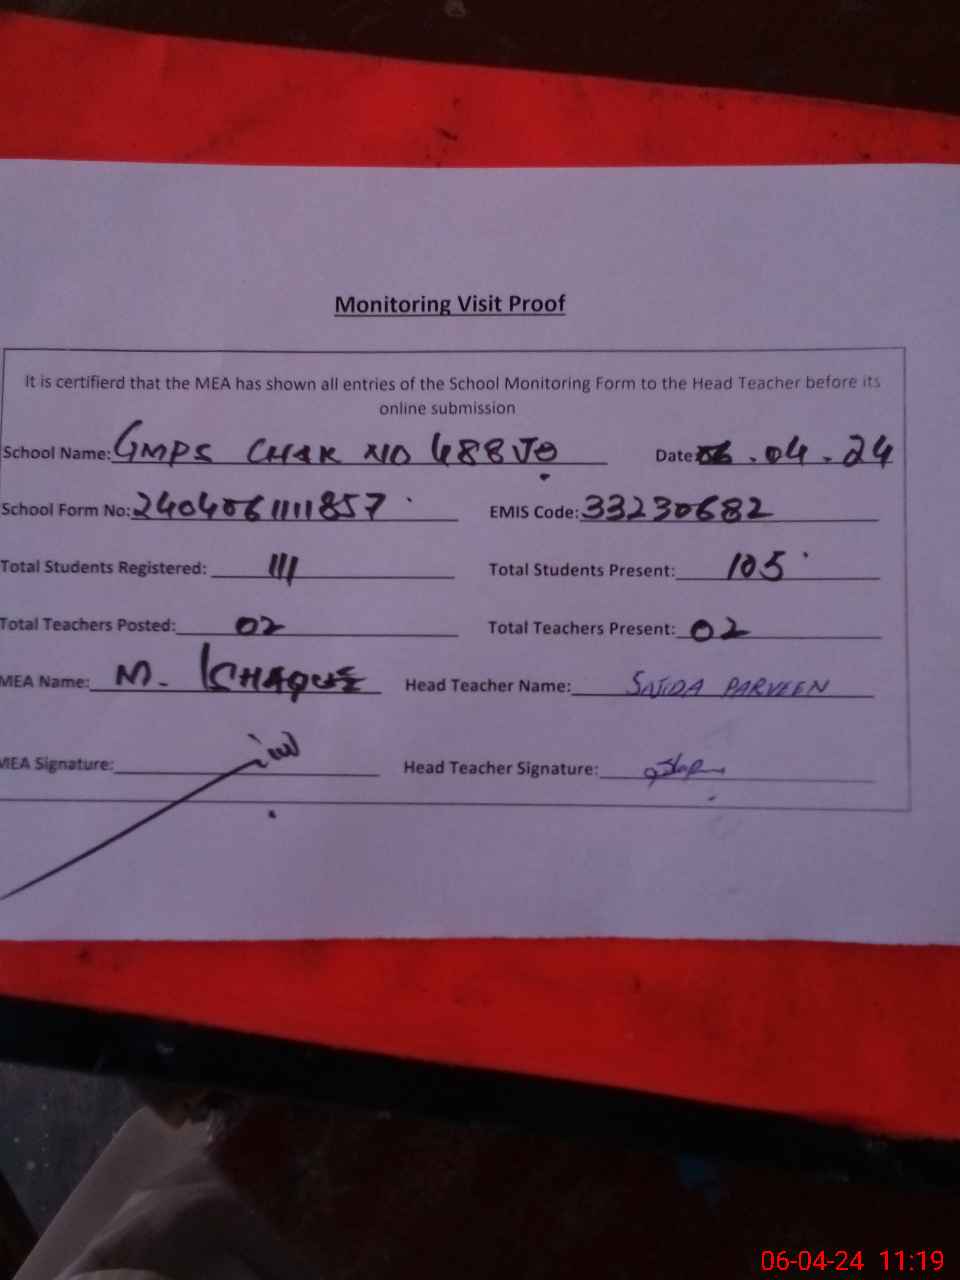 Monitoring Visit Proof
It is certifierd that the MEA has shown all entries of the School Monitoring Form to the Head Teacher before its
online submission
School Name: GMPS CHAK NO 488 JB Date: 06.04.24
School Form No: 2404061111857 EMIS Code: 33230682
Total Students Registered: 111 Total Students Present: 105
Total Teachers Posted: 02 Total Teachers Present: 02
MEA Name: M. ISHAQUE Head Teacher Name: SAJIDA PARVEEN
MEA Signature: Head Teacher Signature:
06-04-24 11:19